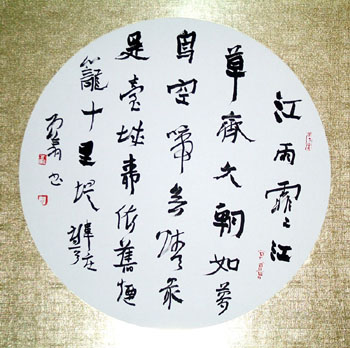 江雨霏〻江
草齊六朝如夢
鳥空啼无情最
是臺城柳依舊煙
籠十里堤 庄
书